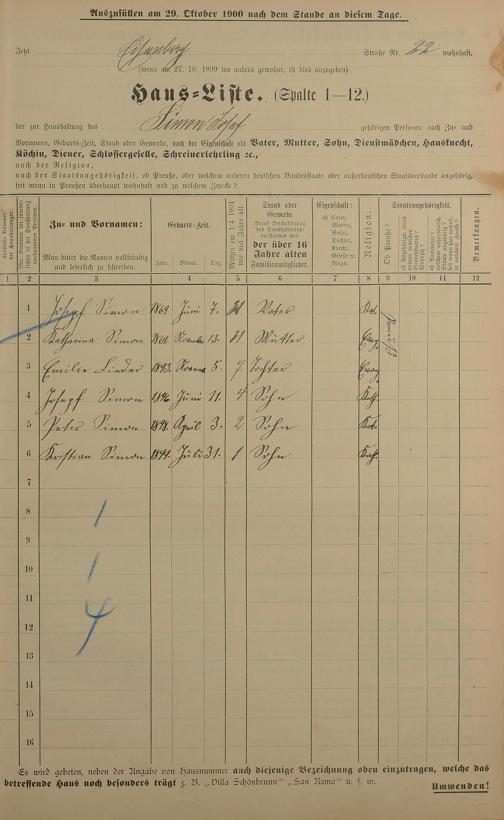 Auszufüllen am 29. Oktober 1900 nach dem Stande an diesem Tage.
Jetzt Eisenberg Straße Nr. 22 wohnhaft.
(wenn am 27. 10. 1899 wo anders gewohnt, ist dies anzugeben)
Haus-Liste. (Spalte 1—12.)
der zur Haushaltung des Simon Josef gehörigen Personen nach Zu- und
Vornamen, Geburts-Zeit, Stand oder Gewerbe, nach der Eigenschaft als Vater, Mutter, Sohn, Dienstmädchen, Hausknecht,
Köchin, Diener, Schlossergeselle, Schreinerlehrling ꝛc.,
nach der Religion,
nach der Staatsangehörigkeit, ob Preuße, oder welchem anderen deutschen Bundesstaate oder außerdeutschen Staatsverbande angehörig,
seit wann in Preußen überhaupt wohnhaft und zu welchem Zwecke?
Zu- und Vornamen:
Man bittet die Namen vollständig und leserlich zu schreiben.
Geburts-Zeit.
Jahr. Monat. Tag.
Mithin am 1/4 1901 wie viel Jahre alt:
Stand oder Gewerbe
der über 16 Jahre alten Familienmitglieder.
Eigenschaft:
ob Vater, Mutter, Sohn, Tochter, Knecht, Geselle u. Magd.
Religion.
Staatsangehörigkeit.
Ob Preuße?
Bemerkungen.
1 2 3 4 5 6 7 8 9 10 11 12
1 Joseph Simon Juni 7. Vater Kat.
2 Katharina Simon 13. Mutter Evg.
3 Emilie 1893. 5. 7 Tochter Evg.
4 Josepf Simon 1896 Juni 11. 4 Sohn Kath.
5 Peter Simon 1898. April 3. 2 Sohn Kat.
6 Kristian Simon 1899. Juli 31. 1 Sohn Kath.
7
8 1
9
10 1
11
12 4
13
14
15
16
Es wird gebeten, neben der Angabe von Hausnummer auch diejenige Bezeichnung oben einzutragen, welche das
betreffende Haus noch besonders trägt z. B. „Villa Schönbrunn" „San Remo" u. s. w.
Umwenden!